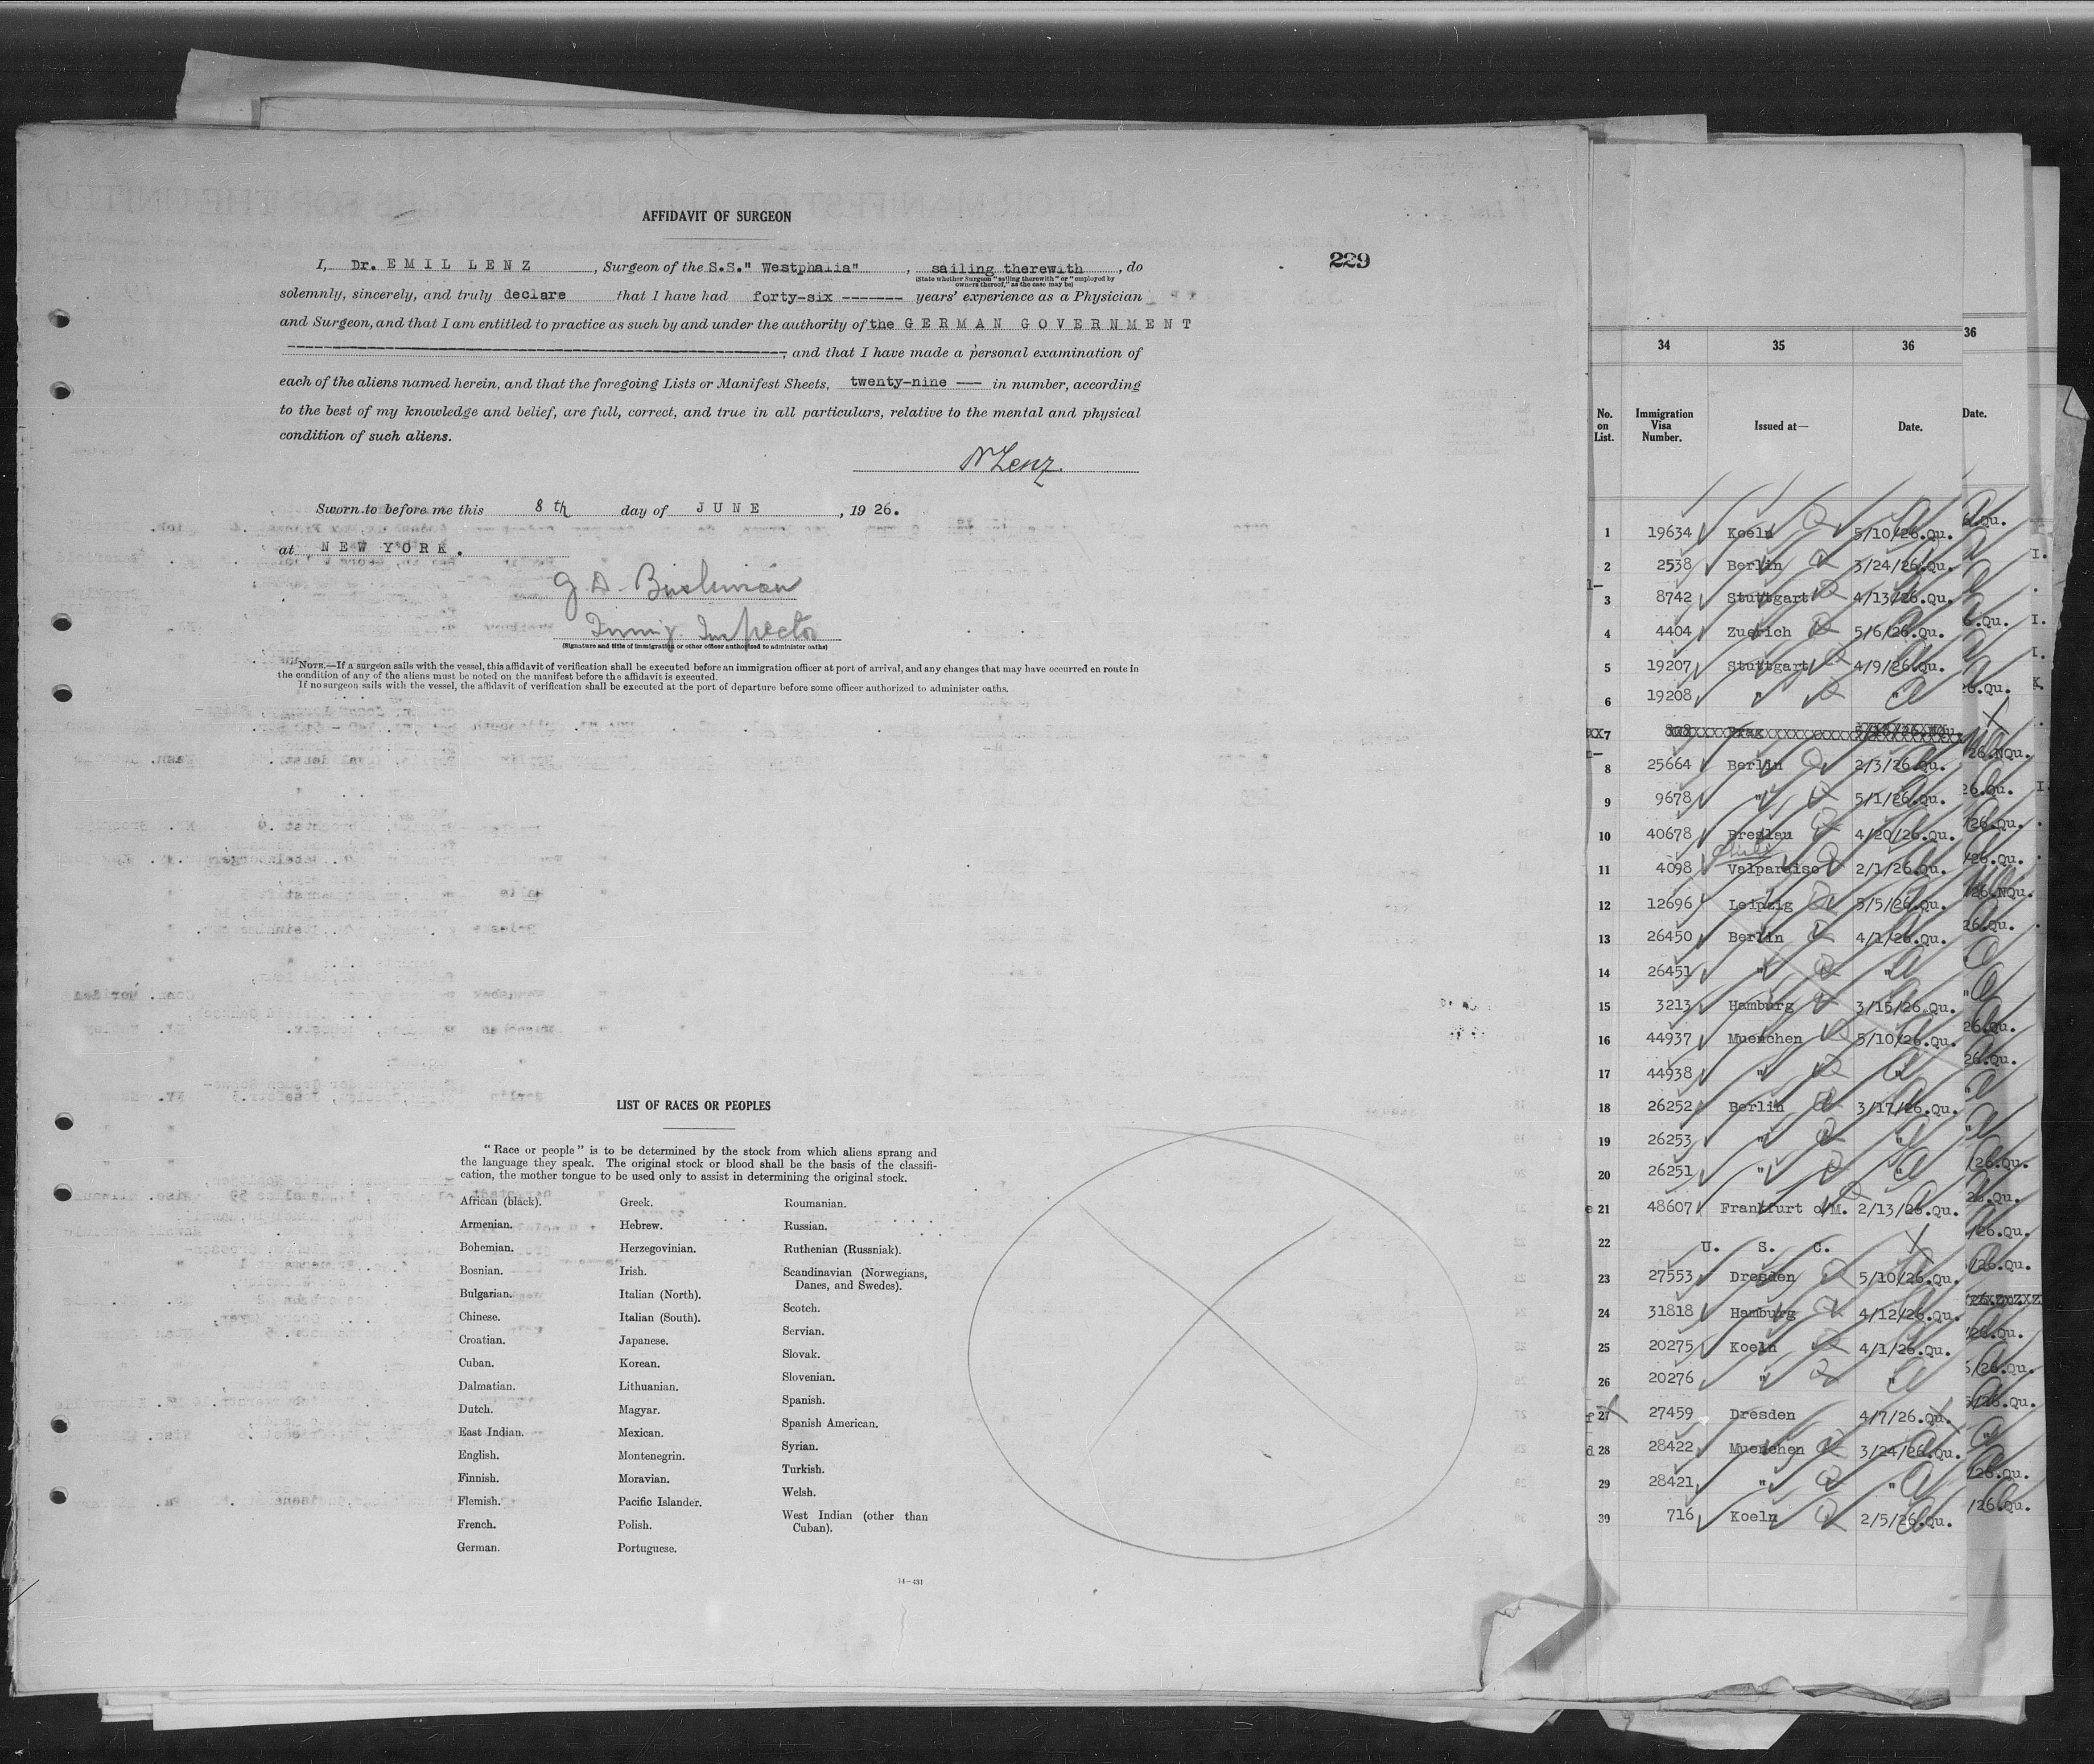 AFFIDAVIT OF SURGEON
229
I, Dr. E M I L L E N Z , Surgeon of the S.S." Westphalia" , sailing therewith , do
(State whether Surgeon "sailing therewith" or "employed by
owners thereof," as the case may be)
solemnly, sincerely, and truly declare that I have had forty-six ------- years' experience as a Physician
and Surgeon, and that I am entitled to practice as such by and under the authority of the G E R M A N G O V E R N M E N T
; and that I have made a personal examination of
each of the aliens named herein, and that the foregoing Lists or Manifest Sheets, twenty-nine --- in number, according
to the best of my knowledge and belief, are full, correct, and true in all particulars, relative to the mental and physical
condition of such aliens.
Lenz.
Sworn to before me this 8 th day of J U N E , 19 26.
at N E W Y O R K .
Immig. Inspector
(Signature and title of immigration or other officer authorized to administer oaths)
NOTE.—If a surgeon sails with the vessel, this affidavit of verification shall be executed before an immigration officer at port of arrival, and any changes that may have occurred en route in
the condition of any of the aliens must be noted on the manifest before the affidavit is executed.
If no surgeon sails with the vessel, the affidavit of verification shall be executed at the port of departure before some officer authorized to administer oaths.
LIST OF RACES OR PEOPLES
"Race or people" is to be determined by the stock from which aliens sprang and
the language they speak. The original stock or blood shall be the basis of the classifi-
cation, the mother tongue to be used only to assist in determining the original stock.
African (black).
Armenian.
Bohemian.
Bosnian.
Bulgarian.
Chinese.
Croatian.
Cuban.
Dalmatian.
Dutch.
East Indian.
English.
Finnish.
Flemish.
French.
German.
Greek.
Hebrew.
Herzegovinian.
Irish.
Italian (North).
Italian (South).
Japanese.
Korean.
Lithuanian.
Magyar.
Mexican.
Montenegrin.
Moravian.
Pacific Islander.
Polish.
Portuguese.
Roumanian.
Russian.
Ruthenian (Russniak).
Scandinavian (Norwegians,
Danes, and Swedes).
Scotch.
Servian.
Slovak.
Slovenian.
Spanish.
Spanish American.
Syrian.
Turkish.
Welsh.
West Indian (other than
Cuban).
14—431
34 35 36
No. on List. Immigration Visa Number. Issued at— Date.
1 19634 Koeln 5/10/26.Qu.
2 2538 Berlin 3/24/26.Qu.
3 8742 Stuttgart 4/13/26.Qu.
4 4404 Zuerich 5/6/26.Qu.
5 19207 Stuttgart 4/9/26.Qu.
6 19208 " "
7 Prag
8 25664 Berlin 2/3/26.Qu.
9 9678 " 5/1/26.Qu.
10 40678 Breslau 4/20/26.Qu.
Chile
11 4098 Valparaiso 2/1/26.Qu.
12 12696 Leipzig 5/5/26.Qu.
13 26450 Berlin 4/1/26.Qu.
14 26451 " "
15 3213 Hamburg 3/15/26.Qu.
16 44937 Muenchen 5/10/26.Qu.
17 44938 " "
18 26252 Berlin 3/17/26.Qu.
19 26253 " "
20 26251 " "
21 48607 Frankfurt o/M. 2/13/26.Qu.
22 U. S. C.
23 27553 Dresden 5/10/26.Qu.
24 31818 Hamburg 4/12/26.Qu.
25 20275 Koeln 4/1/26.Qu.
26 20276 " "
27 27459 Dresden 4/7/26.Qu.
28 28422 Muenchen 3/24/26.Qu.
29 28421 " "
30 716 Koeln 2/5/26.Qu.
36
Date.